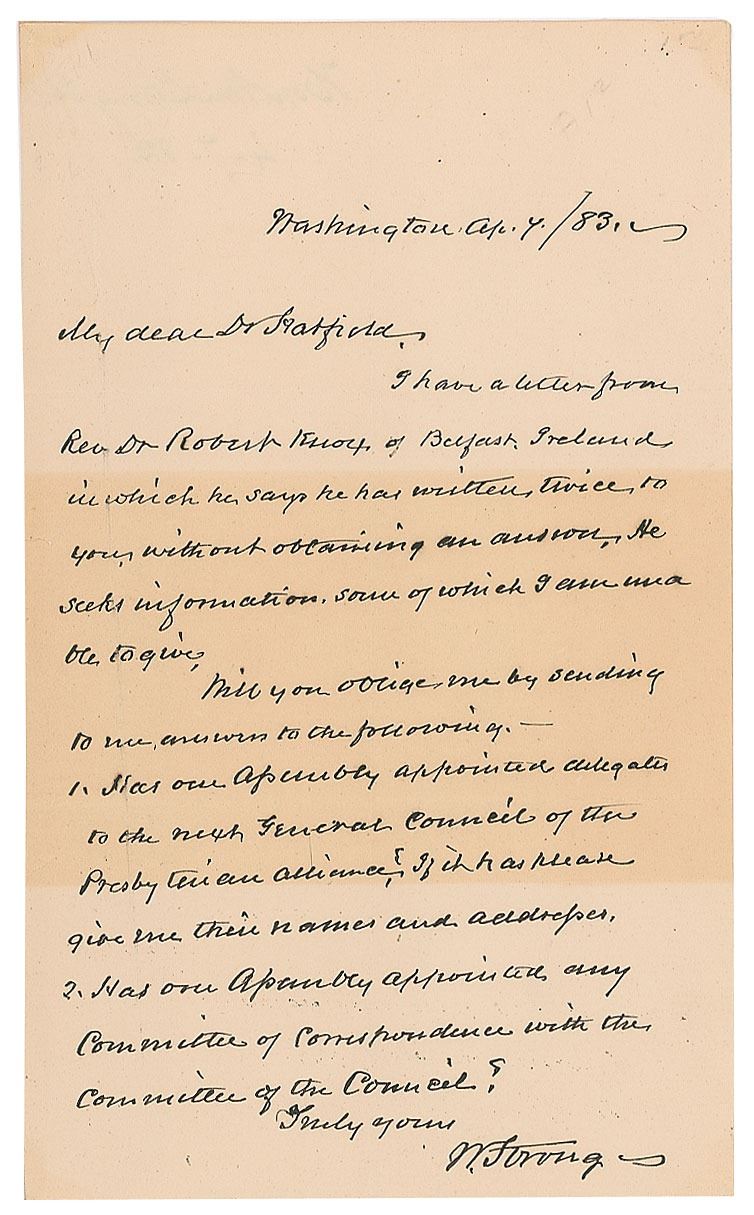 Washington Ap. 4./83.
My dear Dr Hatfield,
I have a letter from
Rev Dr Robert Knox of Belfast, Ireland
in which he says he has written twice to
you, without obtaining an answer. He
seeks information, some of which I am una
ble to give.
Will you oblige me by sending
to me answers to the following.—
1. Has our Assembly appointed delegates
to the next General Council of the
Presbyterian alliance? If it has please
give me their names and addresses.
2. Has our Assembly appointed any
Committee of Correspondence with the
Committee of the Council?
Truly yours
W. Strong